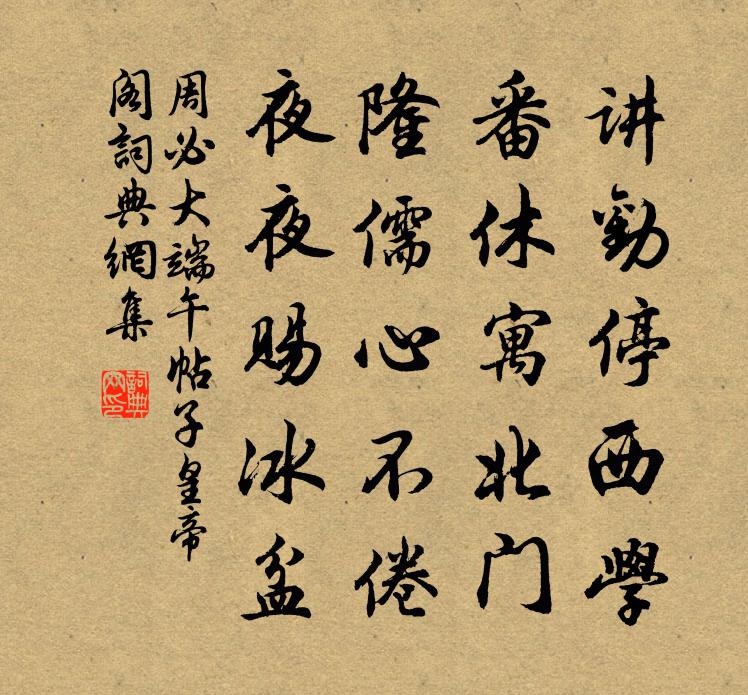 讲勤停西學
番休寓北门
隆儒心不倦
夜夜赐冰盆
周必大端午帖子皇帝
阁詞典網集
詞典网印